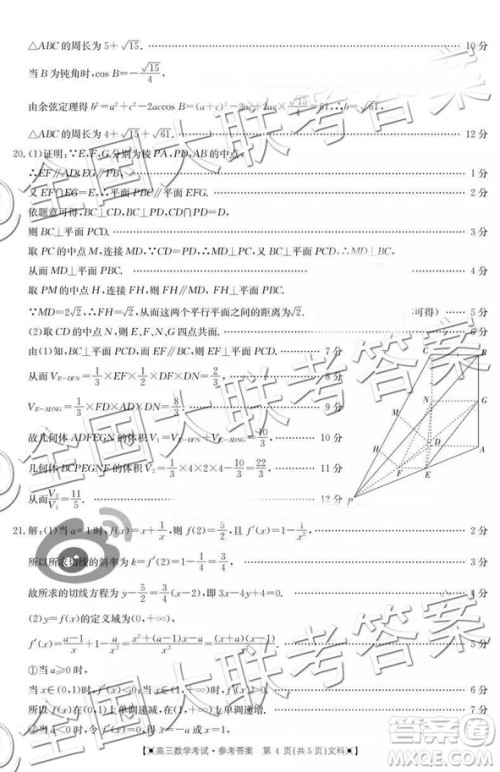 △ABC的周长为5+√15. 10分
当B为钝角时,cos B=-√15/4,
由余弦定理得b²=a²+c²-2accos B=(a+c)²-2ac
△ABC的周长为4+√15+√61. 12分
20.(1)证明:∵E,F,G分别为棱PA,PD,AB的中点,
∴EF∥AD,EG∥PB. 1分
又EF∩EG=E,∴平面PBC∥平面EFG. 2分
依题意可得,BC⊥CD,BC⊥PD,
∴BC⊥平面PCD,
取PC的中点M,连接MD,∵CD=PD,∴MD⊥PC,又BC⊥MD,
从而MD⊥平面PBC. 4分
取PM的中点H,连接FH,则FH∥MD,∴FH⊥平面PBC.
∵MD=2√2,∴FH=√2,从而这两个平行平面的距离为√2. 可得) 5分
(2)取CD的中点N,则E,F,G,N四点共面.
由(1)知,BC⊥平面PCD,而EF∥BC,则EF⊥平面PCD. 7分
从而V_{E-DFN}=1/3×EF×1/2×DF×DN=2/3, 8分
V_{E-ADNG}=1/3×FD×AD×DN=8/3, 9分
故几何体ADFEGN的体积V₁=V_{E-DFN}+V_{E-ADNG}=10/3, 10分
几何体BCPEGNF的体积V₂=1/3×4×2×4-10/3=22/3, 11分
从而V₂/V₁=11/5. 12分
C
B
G
N
A
D
H
F
E
P
21.解:(1)当a=1时,f(x)=x+1/x,则f(2)=5/2,且f′(x)=1-1/x², 2分
所以所求切线的斜率为k=f′(2)=1-1/4=3/4, 3分
故所求的切线方程为y-5/2=3/4(x-2),即3x-4y+4=0. 4分
(2)y=f(x)的定义域为(0,+∞),
f′(x)=(a-1)/x+1-a/x²=(x²+(a-1)x-a)/x²=(x+a)(x-1)/x².
①当a≥0时,
当x∈(0,1)时,f′(x)<0,f(x)在(0,1)上单调递减; 5分
当x∈(1,+∞)时,f′(x)>0,f(x)在(1,+∞)上单调递增. 6分
②当a<0时,
【高三数学考试·参考答案 第4页(共5页)文科】
全国大联考答案
全国大联考答案
全国大联考答案